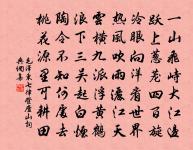 一山飛峙大江邊
跃上葱茏四百旋
冷眼向洋看世界
热風吹雨洒江天
雲橫九派浮黄鶴
浪下三吴起白烟
陶令不知何處去
桃花源里可耕田
毛澤東七律登廬山詞
典網集